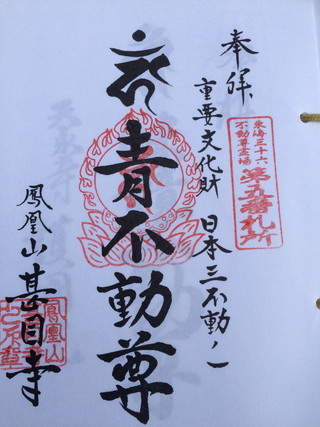 奉拝
東海三十六
不動尊霊場
第五番札所
重要文化財 日本三不動ノ一
青不動尊
鳳凰山甚目寺